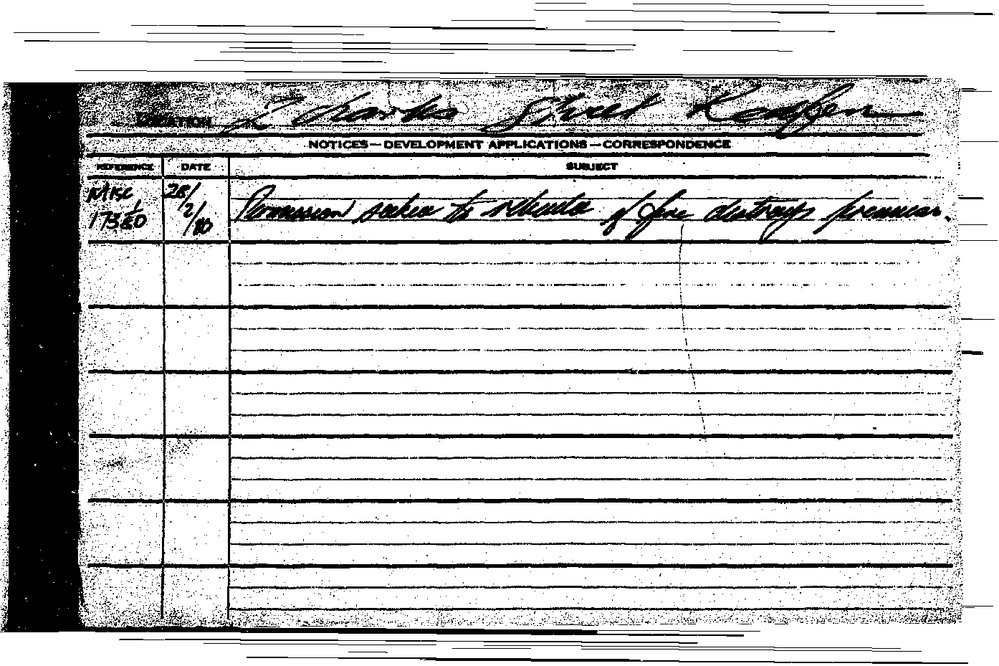 LOCATION 2 Charles Street Redfern
NOTICES — DEVELOPMENT APPLICATIONS — CORRESPONDENCE
REFERENCE DATE SUBJECT
Misc 28/
17380 2/80 Permission sought to rebuild if fire destroys premises.